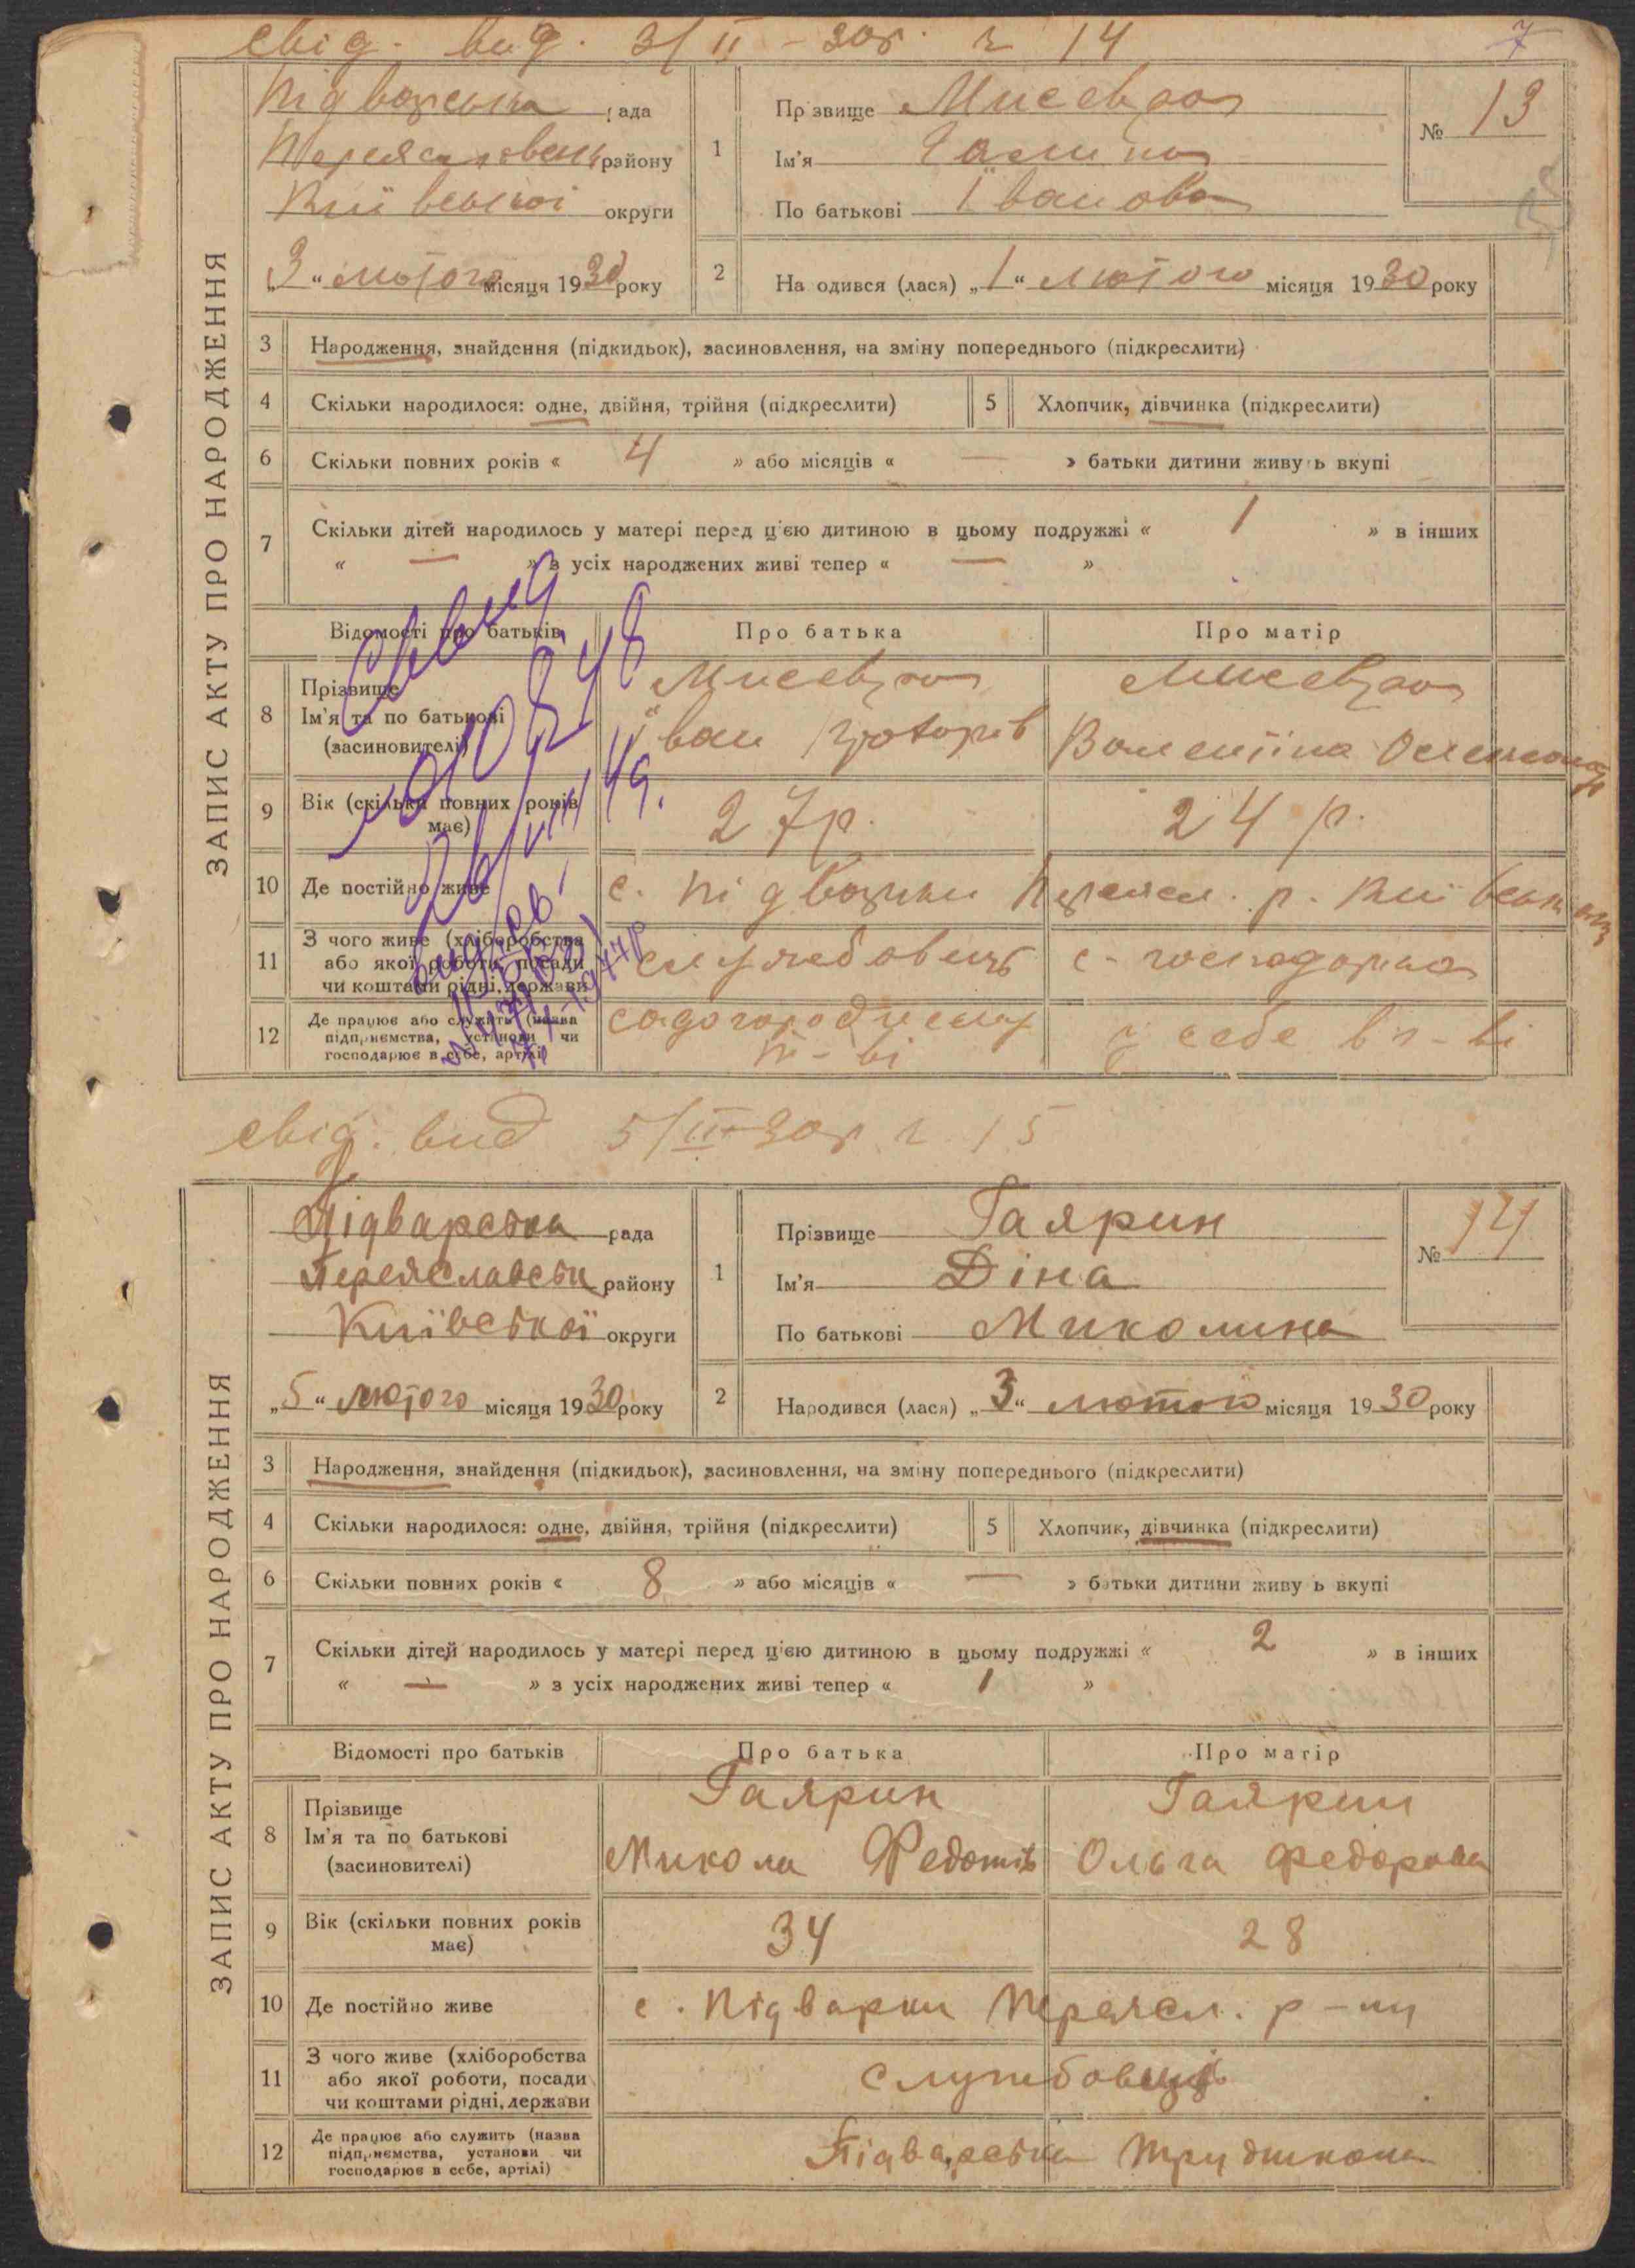 свід. вид. 3/II – 30р. ч 14
7
ЗАПИС АКТУ ПРО НАРОДЖЕННЯ
Підварська рада
району
Київської округи
„3“ лютого місяця 1930 року
1
Прізвище
Ім'я Галина
По батькові Іванова
№ 13
2
На одився (лася) „1“ лютого місяця 1930 року
3 Народження, знайдення (підкидьок), засиновлення, на зміну попереднього (підкреслити)
4 Скільки народилося: одне, двійня, трійня (підкреслити) 5 Хлопчик, дівчинка (підкреслити)
6 Скільки повних років « 4 » або місяців « — » батьки дитини живу ь вкупі
7 Скільки дітей народилось у матері перед ц'єю дитиною в цьому подружжі « 1 » в інших
« — » з усіх народжених живі тепер « — »
Відомості про батьків Про батька Про матір
8 Прізвище
Ім'я та по батькові Іван Валентіна
(засиновителі)
9 Вік (скільки повних років має) 27р. 24 р.
10 Де постійно живе с. Підварки Переясл. р.
11 З чого живе (хліборобства
або якої роботи, посади службовець с-господарка
чи коштами рідні, держави
12 Де працює або служить (назва
підприємства, установи чи у себе в г-ві
господарює в себе, артілі) т-ві
свід. вид 5/II–30р ч 15
ЗАПИС АКТУ ПРО НАРОДЖЕННЯ
Підварська рада
Переяславськ району
Київської округи
„5“ лютого місяця 1930 року
1
Прізвище Гаярин
Ім'я Діна
По батькові Миколина
№ 14
2
Народився (лася) „3“ лютого місяця 1930 року
3 Народження, знайдення (підкидьок), засиновлення, на зміну попереднього (підкреслити)
4 Скільки народилося: одне, двійня, трійня (підкреслити) 5 Хлопчик, дівчинка (підкреслити)
6 Скільки повних років « 8 » або місяців « — » батьки дитини живу ь вкупі
7 Скільки дітей народилось у матері перед ц'єю дитиною в цьому подружжі « 2 » в інших
« — » з усіх народжених живі тепер « 1 »
Відомості про батьків Про батька Про матір
8 Прізвище Гаярин Гаярин
Ім'я та по батькові Микола Федотів Ольга Федорова
(засиновителі)
9 Вік (скільки повних років має) 34 28
10 Де постійно живе с. Підварки Переясл. р-ну
11 З чого живе (хліборобства
або якої роботи, посади
чи коштами рідні, держави
12 Де працює або служить (назва
підприємства, установи чи Підварська
господарює в себе, артілі)